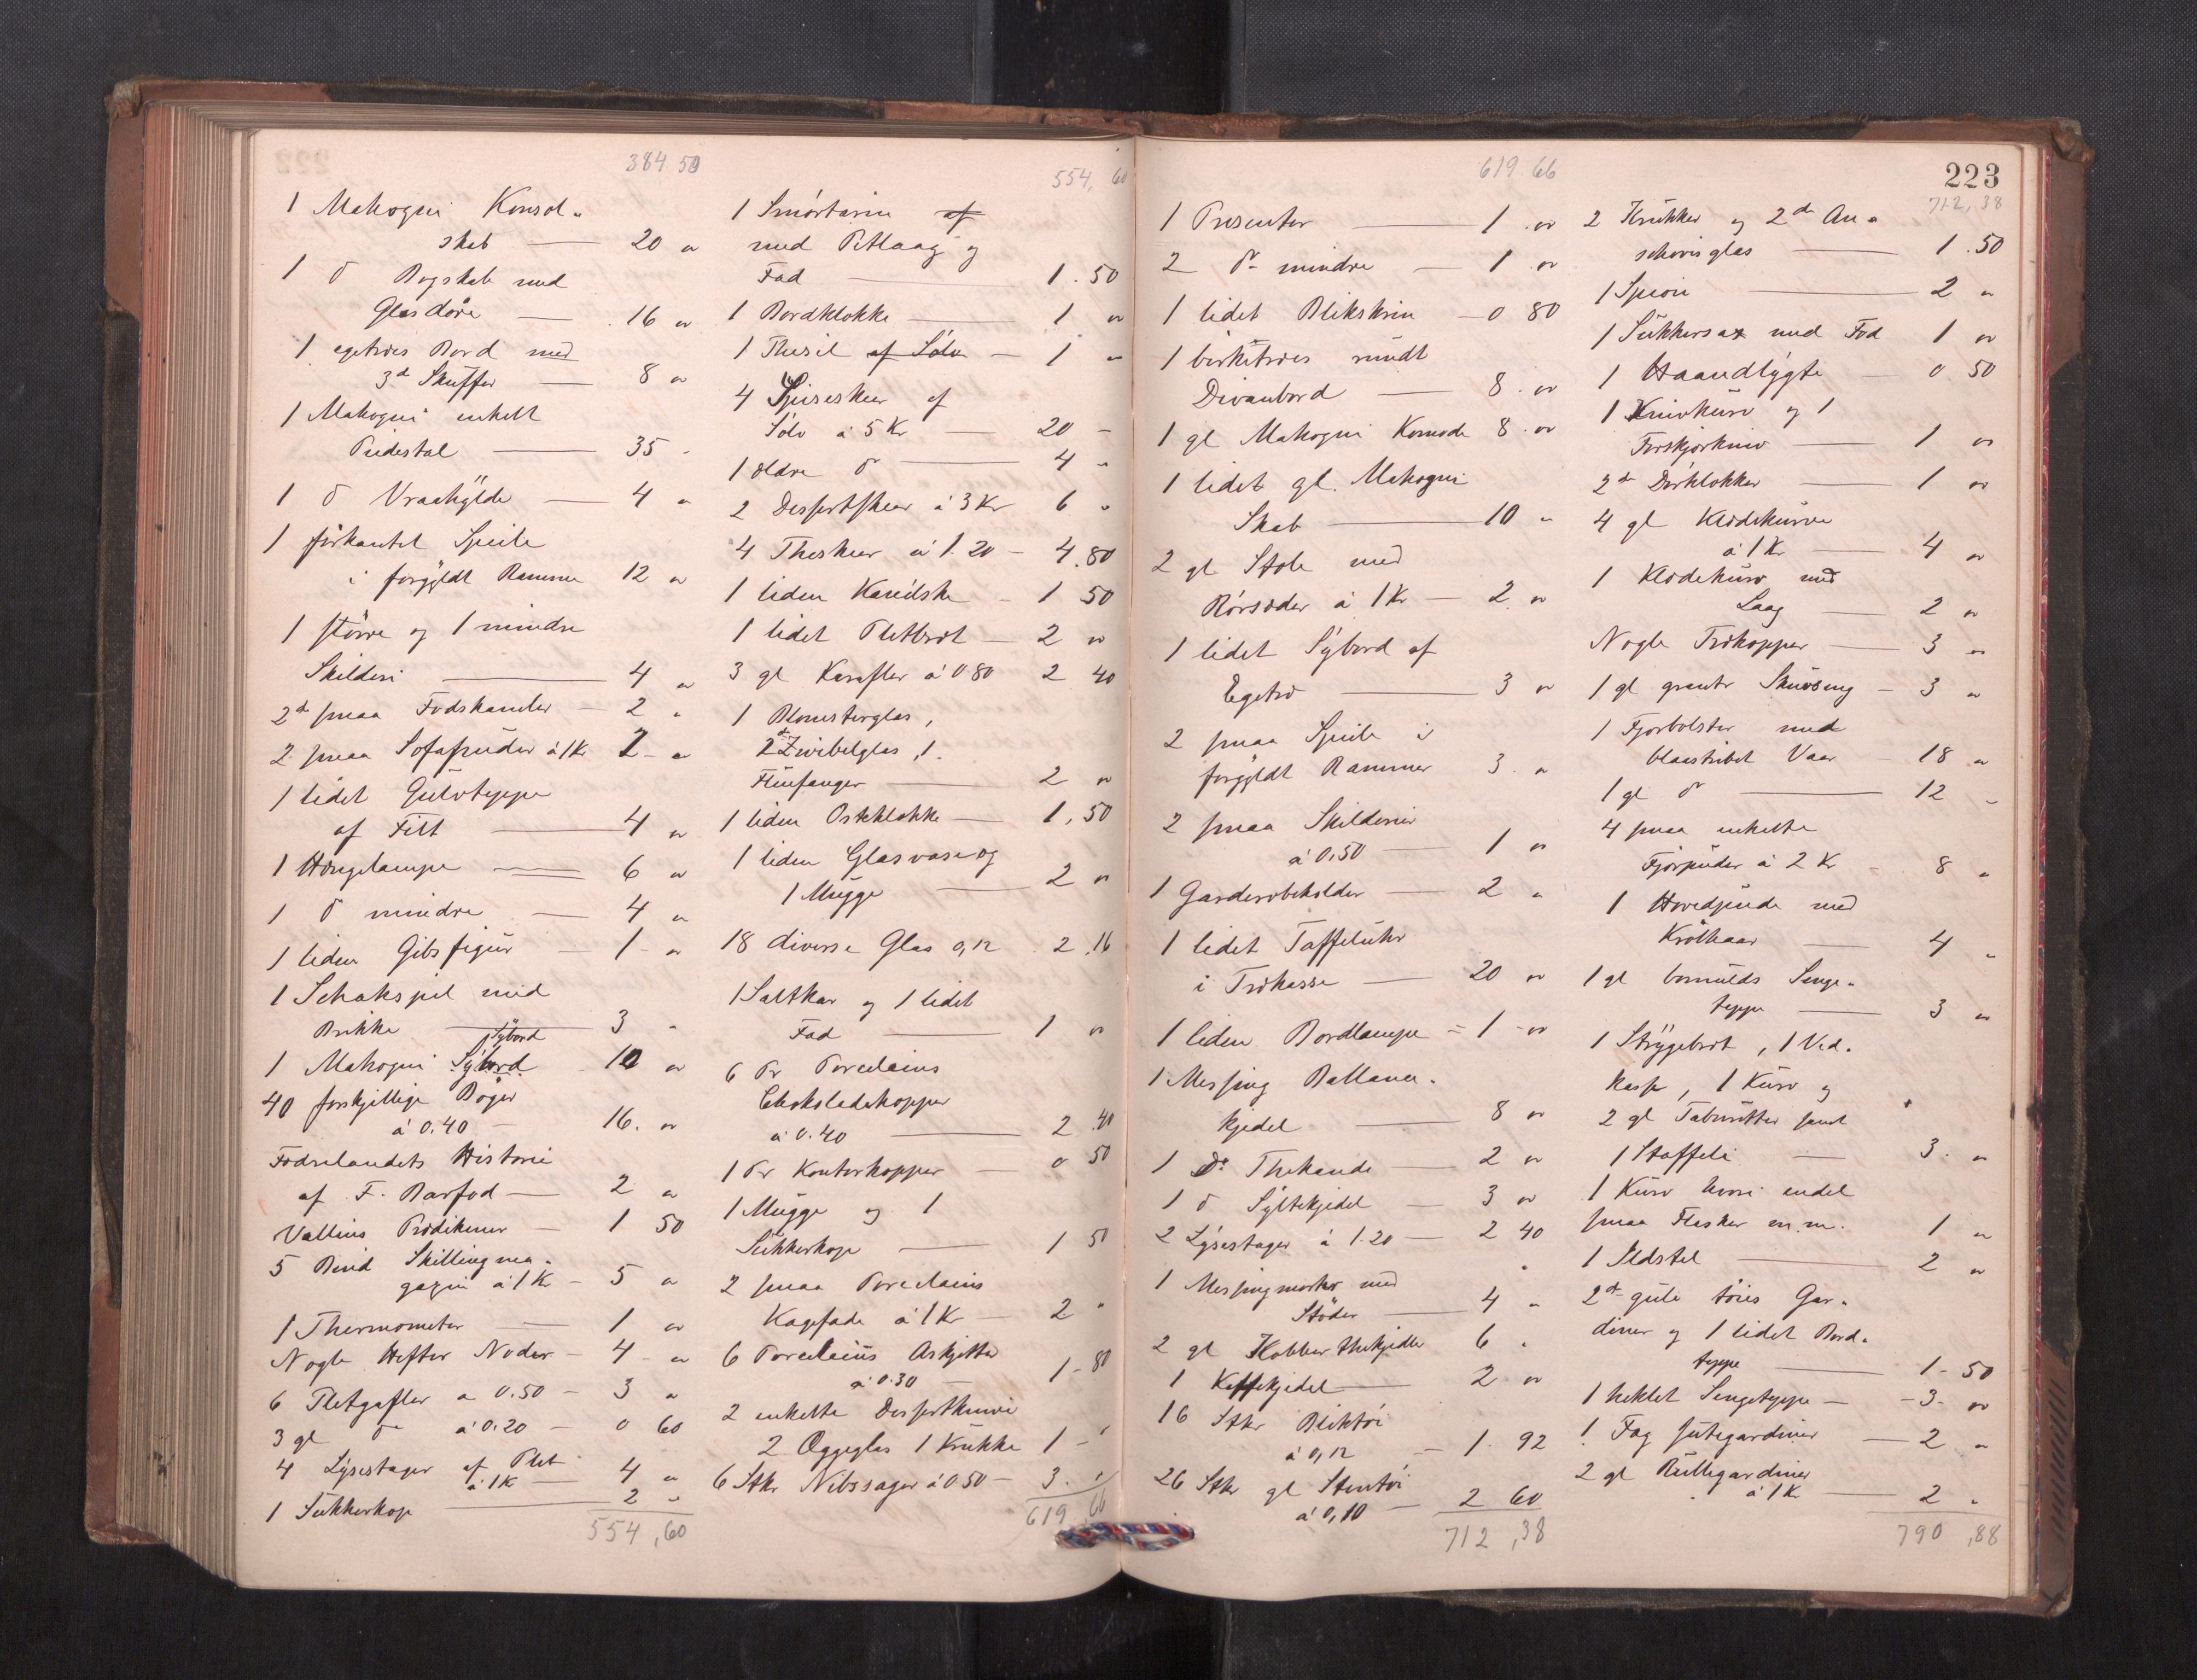 384 50
1 Mahogni Konsol-
skab — 20 "
1 do Bogskab med
Glasdøre — 16 "
1 egetræes Bord med
3de Skuffer — 8 "
1 Mahogni enkelt
Piedestal — 35 "
1 do Vraahylde — 4 "
1 firkantet Speile
i forgyldt Ramme 12 "
1 større og 1 mindre
Skilderi — 4 "
2de smaa Fodskamler — 2 "
2 smaa Sofapuder à 1 Kr 2 - "
1 lidet Gulvteppe
af Filt — 4 "
1 Hængelampe — 6 "
1 do mindre — 4 "
1 liden Gibsfigur — 1 - "
1 Schakspil med
Brikke — 3 "
Sybord
1 Mahogni Sybord 10 "
40 forskjellige Bøger
à 0.40 — 16. "
Fædrelandets Historie
af F. Barfod — 2 "
Vallins Prædikener — 1 50
5 Bind Skillingma-
gazin à 1 Kr — 5 "
1 Thermometer — 1 "
Nogle Hefter Noder — 4 - "
6 Pletgafler a 0.50 — 3 "
3 gl do à 0.20 — 0 60
4 Lysestager af Plet
à 1 K — 4 "
1 Sukkerkop — 2 "
554,60
554, 60
1 Smørterrin af
med Petlaag og
Fad — 1.50
1 Bordklokke — 1 "
1 Thesil af Sølv — 1 "
4 Spiseskeer af
Sølv à 5 Kr — 20 -
1 ældre do — 4 "
2 Dessertskeer à 3 Kr 6 "
4 Theskeer à 1.20 — 4.80
1 liden Karidske — 1 50
1 lidet Pletbræt — 2 "
3 gl Karafler à 0.80 2 40
1 Blomsterglas,
2de Zwibelglas, 1
Fluefanger — 2 "
1 liden Osteklokke — 1,50
1 liden Glasvase og
1 Mugge — 2 "
18 diverse Glas 0,12 2.16
1 Saltkar og 1 lidet
Fad — 1 "
6 Pr Porcelains
Chokoladekopper
à 0.40 — 2.40
1 Pr Kontorkopper — 0 50
1 Mugge og 1
Sukkerkop — 1 50
2 smaa Porcelains
Kagefade à 1 Kr — 2 "
6 Porcelains Askjetter
à 0.30 — 1-80
2 enkelte Dessertknive
2 Æggeglas 1 Krukke 1 - "
6 Stkr Nibssager à 0 50 — 3. "
619,66
619 66
1 Presenter — 1 . "
2 do mindre — 1 "
1 lidet Blikskrin — 0 80
1 birketræes rundt
Divanbord — 8. "
1 gl Mahogni Komode 8. "
1 lidet gl. Mahogni
Skab — 10 "
2 gl Stole med
Rørsæder à 1 Kr — 2. "
1 lidet Sybord af
Egetræ — 3 "
2 smaa Speile i
forgyldt Rammer 3. "
2 smaa Skilderier
à 0,50 — 1 "
1 Garderobeholder — 2 "
1 lidet Taffeluhr
i Trækasse — 20 "
1 liden Bordlampe = 1 - "
1 Messing Ballance-
kjedel — 8 "
1 Do Thekande — 2 "
1 do Syltekjedel — 3 "
2 Lysestager à 1.20 — 2 40
1 Messingmorter med
Støder — 4 "
2 gl Kobberthekjedler 6 "
1 Kaffekjedel — 2 "
16 Stkr Bliktøi
à 0,12 — 1. 92
26 Stkr gl Stentøi
à 0,10 — 2 60
712,38
223
712,38
2 Krukker og 2de An-
schovisglas — 1.50
1 Speion — 2 "
1 Sukkersax med Fod 1 "
1 Haandlygte — 0 50
1 Knivkurv og 1
Forskjærkniv — 1 "
2de Dørklokker — 1 "
4 gl Klædekurve
à 1 Kr — 4 "
1 Klædekurv med
Laag — 2 "
Nogle Trækopper — 3 "
1 gl grantr Skuvseng — 3 "
1 Fjærbolster med
blaastribet Vaar — 18 "
1 gl do — 12 "
4 smaa enkelte
Fjærpuder à 2 Kr — 8 "
1 Hovedpude med
Krølhaar — 4 "
1 gl bomulds Senge-
teppe — 3 "
1 Strygebræt, 1 Ved-
kasse, 1 Kurv og
2 gl Taburetter samt
1 Staffeli — 3. "
1 Kurv hvori endel
smaa Flasker m.m. 1 "
1 Ildstel — 2 "
2de gule tøies Gar-
diner og 1 lidet Bord-
teppe — 1-50
1 heklet Sengeteppe — -3- "
1 Fag Jutegardiner — 2 "
2 gl Rullegardiner
à 1 K — 2 "
790,88